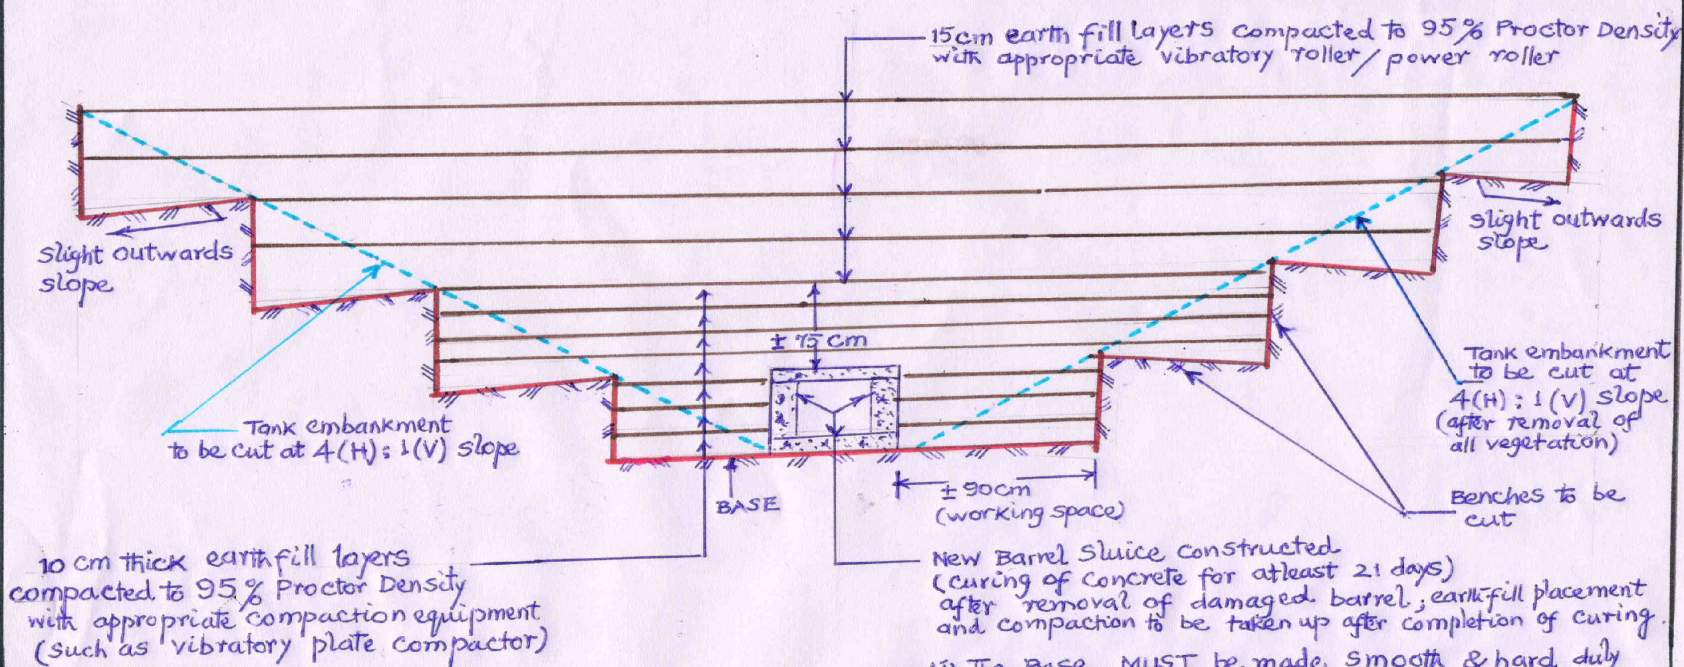 15cm earth fill layers compacted to 95% Proctor Density
with appropriate vibratory roller/power roller
slight outwards
slope
slight outwards
slope
± 75 cm
Tank embankment
to be cut at
4(H) : 1(V) slope
(after removal of
all vegetation)
Tank embankment
to be cut at 4(H) : 1(V) slope
BASE
± 90cm
(working space)
Benches to be
cut
10 cm thick earthfill layers
compacted to 95% Proctor Density
with appropriate compaction equipment
(such as vibratory plate compactor)
New Barrel Sluice constructed
(curing of concrete for atleast 21 days)
after removal of damaged barrel; earthfill placement
and compaction to be taken up after completion of curing.
Base MUST be made smooth & hard duly